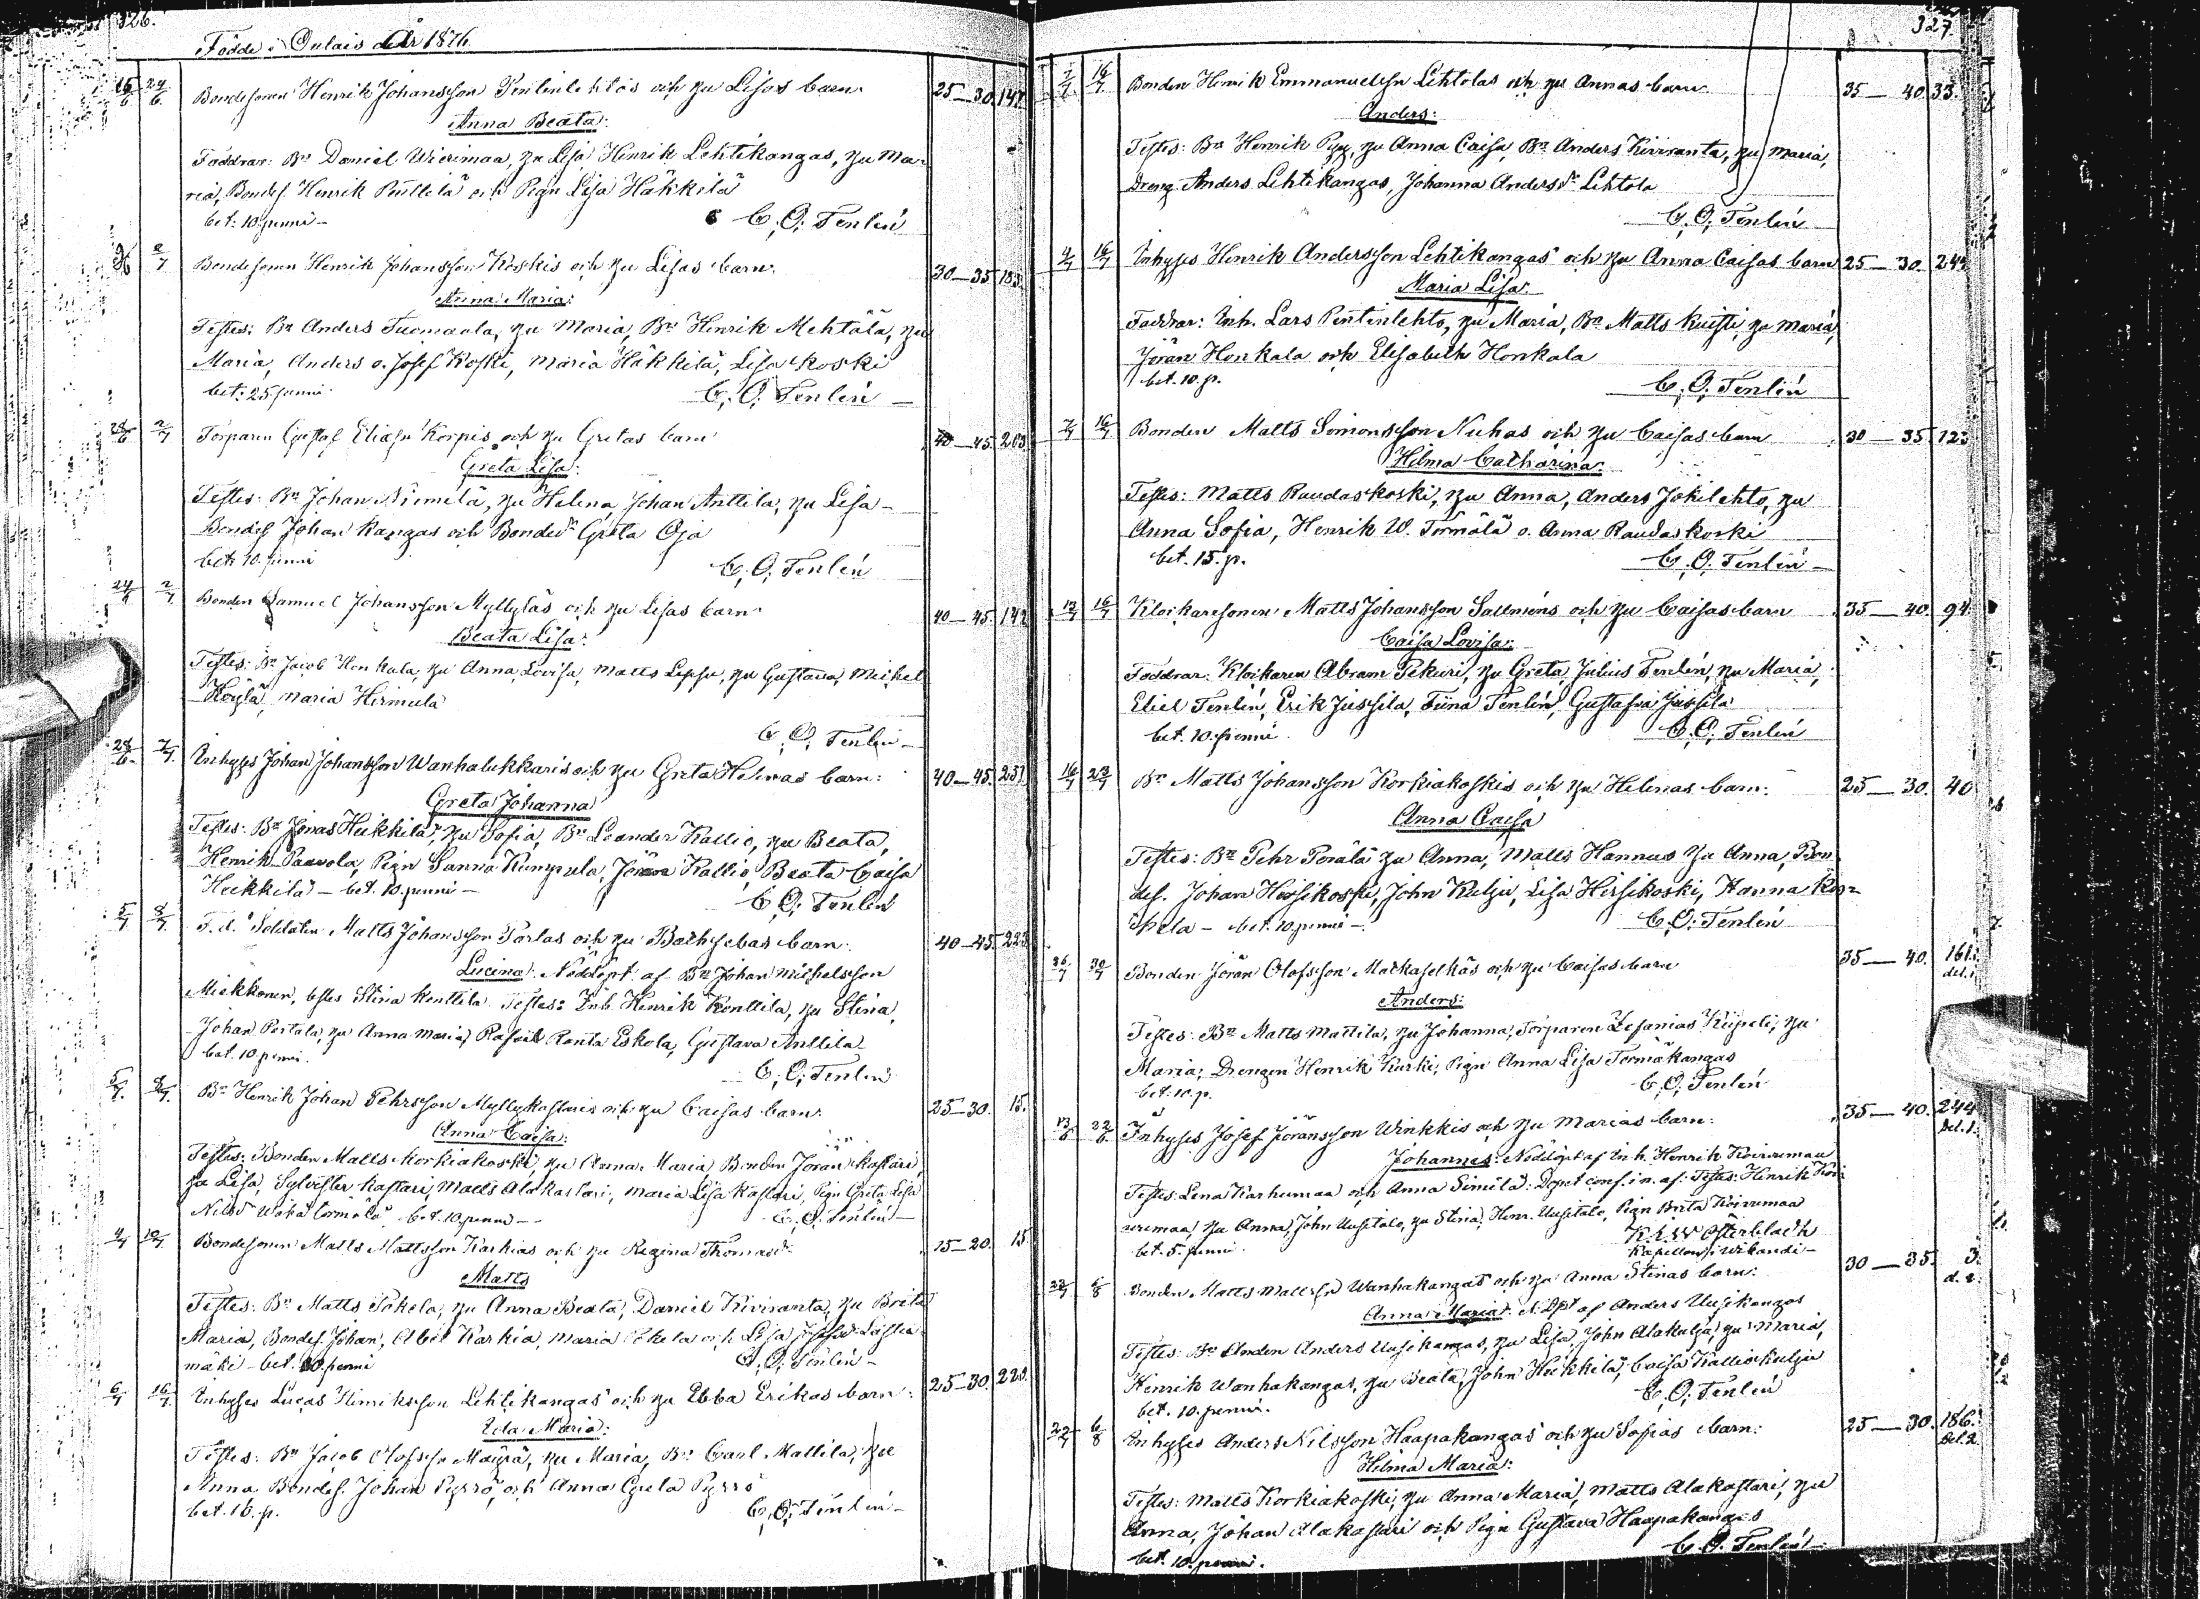 326.
Födde i Oulais år 1876
16/6 24/6 Bondesonen Henrik Johansson Pentinlehtos och hu Lisas barn 25—30. 147
Anna Beata:
Faddrar: Bn Daniel Wierimaa, hu Lisa Henrik Lehtikangas, hu Ma-
ria, Bondes. Henrik Puttilä och Pign Lisa Häkkilä
bet: 10 penni – C. O. Tenlén
2/7 Bondesonen Henrik Johansson Koskis och hu Lisas barn. 30—35
Anna Maria:
Testes: Bn Anders Tuomaala, hu Maria, Bn Henrik Mehtälä, hu
Maria, Anders o. Josef Koski, Maria Häkkilä, Lisa Koski
bet: 25 penni C. O. Tenlén –
2/7 Torparen Gustaf Eliass. Korpis och hu Gretas barn 40—45. 203
Greta Lisa:
Testes: Bn Johan Niemelä, hu Helena, Johan Anttila, hu Lisa –
Bondes Johan Kangas och Bonded. Greta Oja
bet: 10 penni C. O. Tenlén
2/7 Bonden Samuel Johansson Myllyläs och hu Lisas barn 40—45. 142
Beata Lisa:
Testes: Bn Jacob Honkala, hu Anna Lovisa, Matts Leppu, hu Gustava, Michel
Köylä, Maria Hirmula
C. O. Tenlén –
28/6 Inhyses Johan Johansson Wanhalukkaris och hu Greta Helenas barn: 40—45. 251
Greta Johanna
Testes: Bn Jonas Heikkilä, hu Sofia, Bn Leander Kallio, hu Beata,
Henrik Paavola, Pign Sanna Kumpula, Jöran Kallio, Beata Caisa
Heikkilä – bet. 10 penni – C. O. Tenlén
5/7 8/7 F. d. Soldaten Matts Johansson Portas och hu Bathsebas barn. 40—45. 223
Lucina: Nöddöpt af Bn Johan Michelsson
Miekkonen, testes Stina Konttila. Testes: Inh. Henrik Konttila, hu Stina,
Johan Portala, hu Anna Maria, Rafael Ranta Eskola, Gustava Anttila
bet. 10 penni. C. O. Tenlén
5/7. 8/7. Bn Henrik Johan Pehrsson Myllykastaris och hu Caisas barn: 25—30. 15.
Anna Caisa:
Testes: Bonden Matts Korkiakoski, hu Anna Maria, Bonden Jöran Kastari
hu Lisa, Sylvester Kastari, Matts Alakastari, Maria Lisa Kastari, Pign Greta Lisa
Nilsdr bet. 10 penni – C. O. Tenlén –
Bondesonen Matts Mattsson Karkias och hu Regina Thomasdr 15—20. 15
Matts
Testes: Bn Matts Tokola, hu Anna Beata, Daniel Kiviranta, hu Brita
Maria, Bondes. Johan, Abel Karkia, Maria Tokela och Lisa
mäki – bet. 10 penni C. O. Tenlén –
6/7 16/7. Inhyses Lucas Henriksson Lehtikangas och hu Ebba Erikas barn: 25—30. 228.
Ida Maria:
Testes: Bn Jacob Olofsson Mäyrä, hu Maria, Bn Carl Mattila, hu
Anna Bondes. Johan Pyrrö och Anna Greta Pyrrö
bet. 16. p. C. O. Tenlén –
327
16/7 Bonden Henrik Emmanuelsn Lehtolas och hu Annas barn 35—40 33.
Anders:
Testes: Bn Henrik Pyy, hu Anna Caisa, Bn Anders Kiviranta, hu Maria,
Dreng. Anders Lehtikangas, Johanna Andersdr Lehtola
C. O. Tenlén
16/7 Inhyses Henrik Andersson Lehtikangas och hu Anna Caisas barn 25—30. 244
Maria Lisa:
Faddrar: Inh. Lars Pentinlehto, hu Maria, Bn Matts Kuisti, hu Maria,
Jöran Honkala och Elisabeth Honkala
bet. 10. p. C. O. Tenlén
7/7 16/7 Bonden Matts Simonsson Nuhas och hu Caisas barn 30—35 123
Hilma Catharina:
Testes: Matts Raudaskoski, hu Anna, Anders Jokilehto, hu
Anna Sofia, Henrik W. Törmälä o. Anna Raudaskoski
bet. 15. p. C. O. Tenlén –
16/7 Klockaresonen Matts Johansson Salmens och hu Caisas barn 35—40. 94.
Caisa Lovisa:
Faddrar: Klockaren Abram Pekuri, hu Greta, Julius Tenlén, hu Maria,
Eliel Tenlén, Erik Jussila, Fiina Tenlén, Gustafva Jussila
bet. 10. penni C. O. Tenlén
16/7 23/7 Bn Matts Johansson Korkiakoskis och hu Helenas barn: 25—30. 40
Anna Caisa
Testes: Bn Pehr Perälä hu Anna, Matts Hannus hu Anna, Bon-
des. Johan Hirsikoski, John Kulju, Lisa Hirsikoski, Hanna Kop-
pela – bet. 10. penni – C. O. Tenlén
26/7 30/7 Bonden Jöran Olofsson Matkaselkäs och hu Caisas barn 35—40. 161. del. 1.
Anders:
Testes: Bn Matts Mattila, hu Johanna, Torparen Zefanias Kiipeli, hu
Maria; Drengen Henrik Kurki, Pign Anna Lisa Törmäkangas
bet. 10. p. C. O. Tenlén
Inhyses Josef Jöransson Winkkis och hu Marias barn: 35—40. 244 del. 1.
Johannes: Nöddöpt af Inh. Henrik Koirumaa
Testes: Lena Karhumaa och Anna Similä: Dopet conf. in. af: Testes: Henrik Koi-
rumaa, hu Anna, John Uusitalo, hu Stina, Henr. Uusitalo, Pign Brita Koirumaa
bet. 5. penni. Österbladh
Kapellan i Wihandi –
6/8 Bonden Matts Mattssn Wanhakangas och hu Anna Stinas barn: 30—35. 3. d. 2.
Anna Maria: N. Dpt af Anders Uusikangas
Testes: Bn Anders Uusikangas, hu Lisa, John Alakulju, hu Maria,
Henrik Wanhakangas, hu Beata, John Heikkilä, Caisa Kalliokulju
bet. 10. penni. C. O. Tenlén
6/8 Inhyses Anders Nilsson Haapakangas och hu Sofias barn: 25—30. 186. del. 2.
Hilma Maria:
Testes: Matts Korkiakoski, hu Anna Maria, Matts Alakastari, hu
Anna, Johan Alakastari och Pign Gustava Haapakangas
bet. 10. penni. C. O. Tenlén